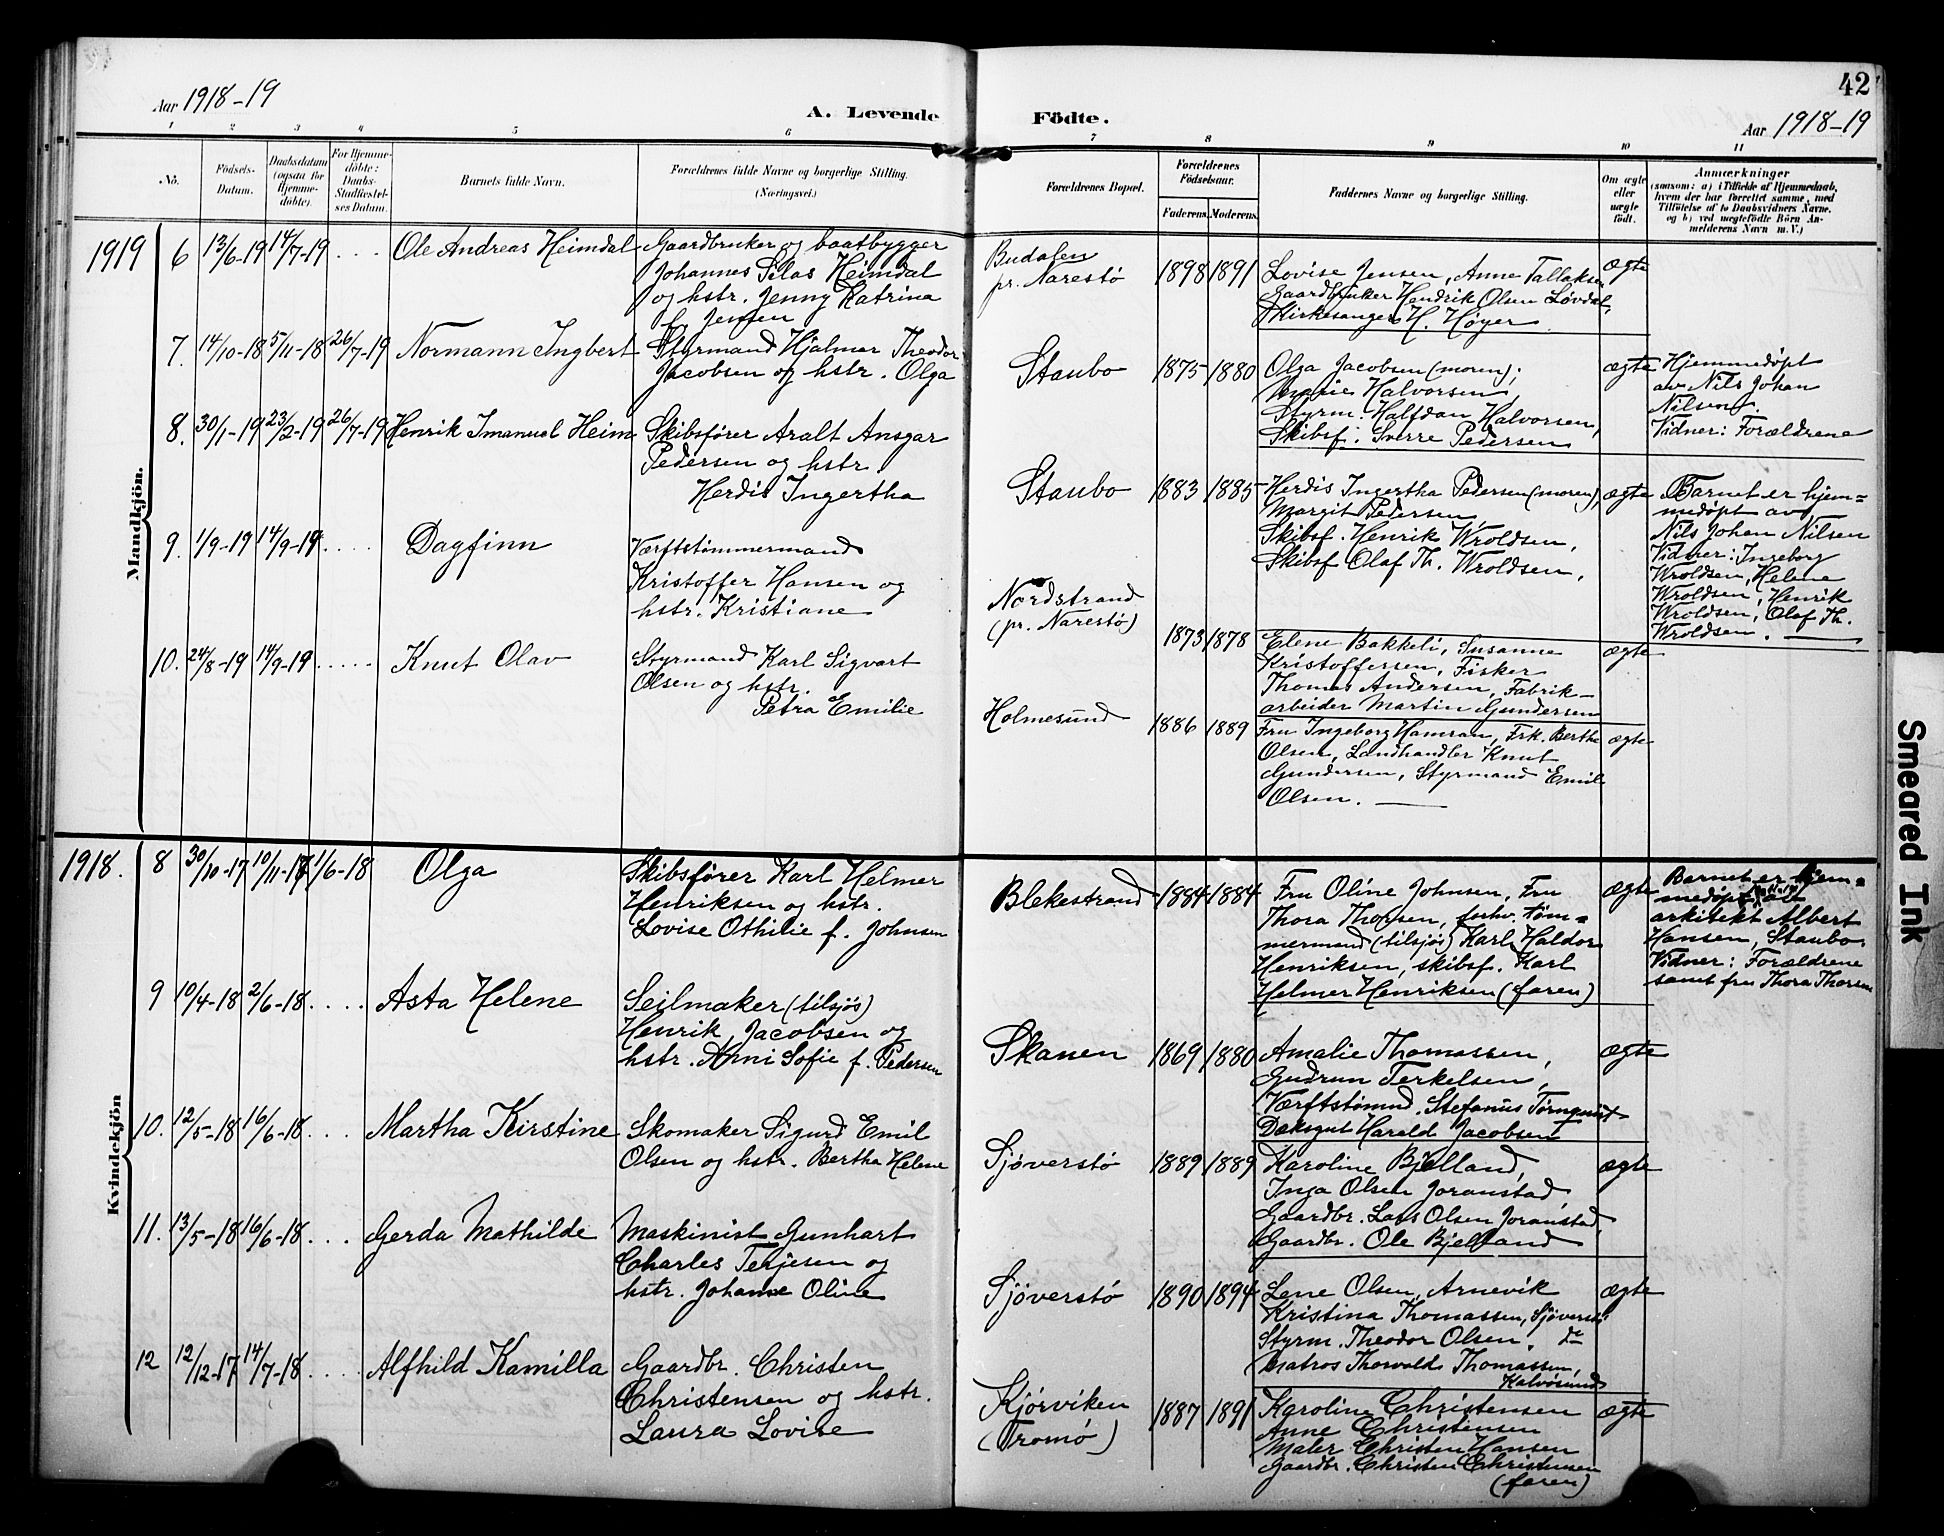 42
Aar 1918-19
A. Levende Födte.
Aar 1918-19
1 2 3 4 5 6 7 8 9 10 11
No.
Födsels-
Datum.
Daabsdatum
(ogsaa for
Hjemme-
döbte).
For Hjemme-
döbte:
Daabs-
Stadfæstel-
ses Datum.
Barnets fulde Navn.
Forældrenes fulde Navne og borgerlige Stilling.
(Næringsvei.)
Forældrenes Bopæl.
Forældrenes
Födselsaar.
Faderens.
Moderens.
Faddernes Navne og borgerlige Stilling.
Om ægte
eller
uægte
født.
Anmærkninger
(saasom: a) i Tilfælde af Hjemmedaab,
hvem der har forrettet samme, med
Tilföielse af to Daabsvidners Navne,
og b) ved uægtefödte Börn An-
melderens Navn m. V.)
Mandkjön.
1919
6 13/6-19 14/7-19 .... Ole Andreas Heimdal
Gaardbruker og baatbygger
Johannes Silas Heimdal
og hstr. Jenny Katrina
f. Jensen
Budalen
pr. Narestø
1898 1891
Lovise Jensen, Anne Tallaksen
Gaardbruker Hendrik Olsen Løvdal,
Kirkesanger H. Høyer
ægte
7. 14/10-18 5/11-18 26/7-19 Normann Ingbert
Styrmand Hjalmar Theodor
Jacobsen og hstr. Olga
Staubo
1875 1880
Olga Jacobsen (moren),
Marie Halvorsen,
Styrm. Halfdan Halvorsen,
Skibsf. Sverre Pedersen
ægte
Hjemmedøpt
av Nils Johan
Nilsen.
Vidner: Forældrene
8. 30/1-19 23/2-19 26/7-19 Henrik Imanuel Heim
Skibsfører Aralt Ansgar
Pedersen og hstr.
Herdis Ingertha
Staubo
1883 1885
Herdis Ingertha Pedersen (moren),
Margit Pedersen
Skibsf. Henrik Wroldsen,
Skibsf Olaf Th. Wroldsen.
ægte
Barnet er hjem=
medøpt av
Nils Johan Nilsen
Vidner: Ingeborg
Wroldsen, Helene
Wroldsen, Henrik
Wroldsen, Olaf Th.
Wroldsen.
9. 1/9-19 14/9-19 ..... Dagfinn
Værftstømmermand
Kristoffer Hansen og
hstr. Kristiane
Nordstrand
(pr. Narestø)
1873 1878
Elene Bakkeli, Susanne
Kristoffersen, Fisker
Thomas Andersen, Fabrik-
arbeider Martin Gundersen
ægte
10. 24/8-19 14/9-19 ..... Knut Olav
Styrmand Karl Sigvart
Olsen og hstr.
Petra Emilie
Holmesund
1886 1889
Fru Ingeborg Hamran, Frk. Berthe
Olsen, Landhandler Knut
Gundersen, Styrmand Emil
Olsen.
ægte
Kvindekjön
1918.
8 30/10-17 10/11-17 1/6-18 Olga
Skibsfører Karl Helmer
Henriksen og hstr.
Lovise Othilie f. Johnsen
Blekestrand
1884 1884
Fru Oline Johnsen, Fru
Thora Thorsen, forhv. tøm=
mermand (tilsjøs) Karl Haldor
Henriksen, skibsf. Karl
Helmer Henriksen (faren)
ægte
Barnet er hjem=
medøpt av
arkitekt Albert
Hansen, Staubo
Vidner: Forældrene
samt fru Thora Thorsen
9 10/4-18 2/6-18 .... Asta Helene
Seilmaker (tilsjøs)
Henrik Jacobsen og
hstr. Anni Sofie f. Pedersen
Skanen
1869 1880
Amalie Thomassen,
Gudrun Terkelsen,
Værftstømmd. Stefanus Tørnquist
Dæksgut Harald Jacobsen
ægte
10. 12/5-18 16/6-18 ... Martha Kirstine
Skomaker Sigurd Emil
Olsen og hstr. Bertha Helene
Sjøverstø
1889 1889
Karoline Bjelland,
Inga Olsen Joranstad
Gaardbr. Lars Olsen Joranstad,
Gaardbr. Ole Bjelland
ægte
11. 13/5-18 16/6-18 ... Gerda Mathilde
Maskinist Gunhart
Charles Terjesen og
hstr. Johanne Oline
Sjøverstø
1890 1894
Lene Olsen, Arnevik
Kristina Thomassen, Sjøverstø
Styrm. Theodor Olsen, do
Matros Thorvald Thomassen,
Kalvøsund
ægte
12 12/12-17 14/7-18 .... Alfhild Kamilla
Gaardbr. Christen
Christensen og hstr.
Laura Lovise
Kjørviken
(Tromø)
1887 1891
Karoline Christensen
Anne Christensen
Maler Christen Hansen
Gaardbr. Christen Christensen
(faren)
ægte
Smeared Ink